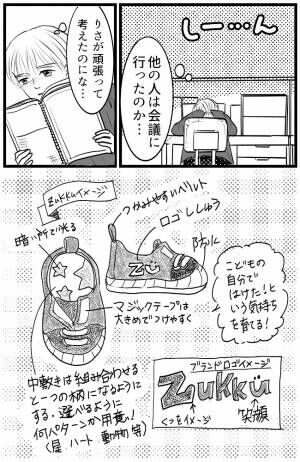 しーーん…
他の人は会議に
行ったのか…
りさが頑張って
考えたのにな…
Zukkuイメージ
つかみやすいベルト
ロゴししゅう
暗い所で光る
ZU
防水
こどもの
自分で
はけた!と
いう気持ち
を育てる!
マジックテープは
大きめでつけやすく
中敷きは組み合わせる
と一つの柄になるように
する。選べるように
何パターンか用意!
(星 ハート 動物 等)
ブランドロゴイメージ
ZUKKU
くつをイメージ
笑顔